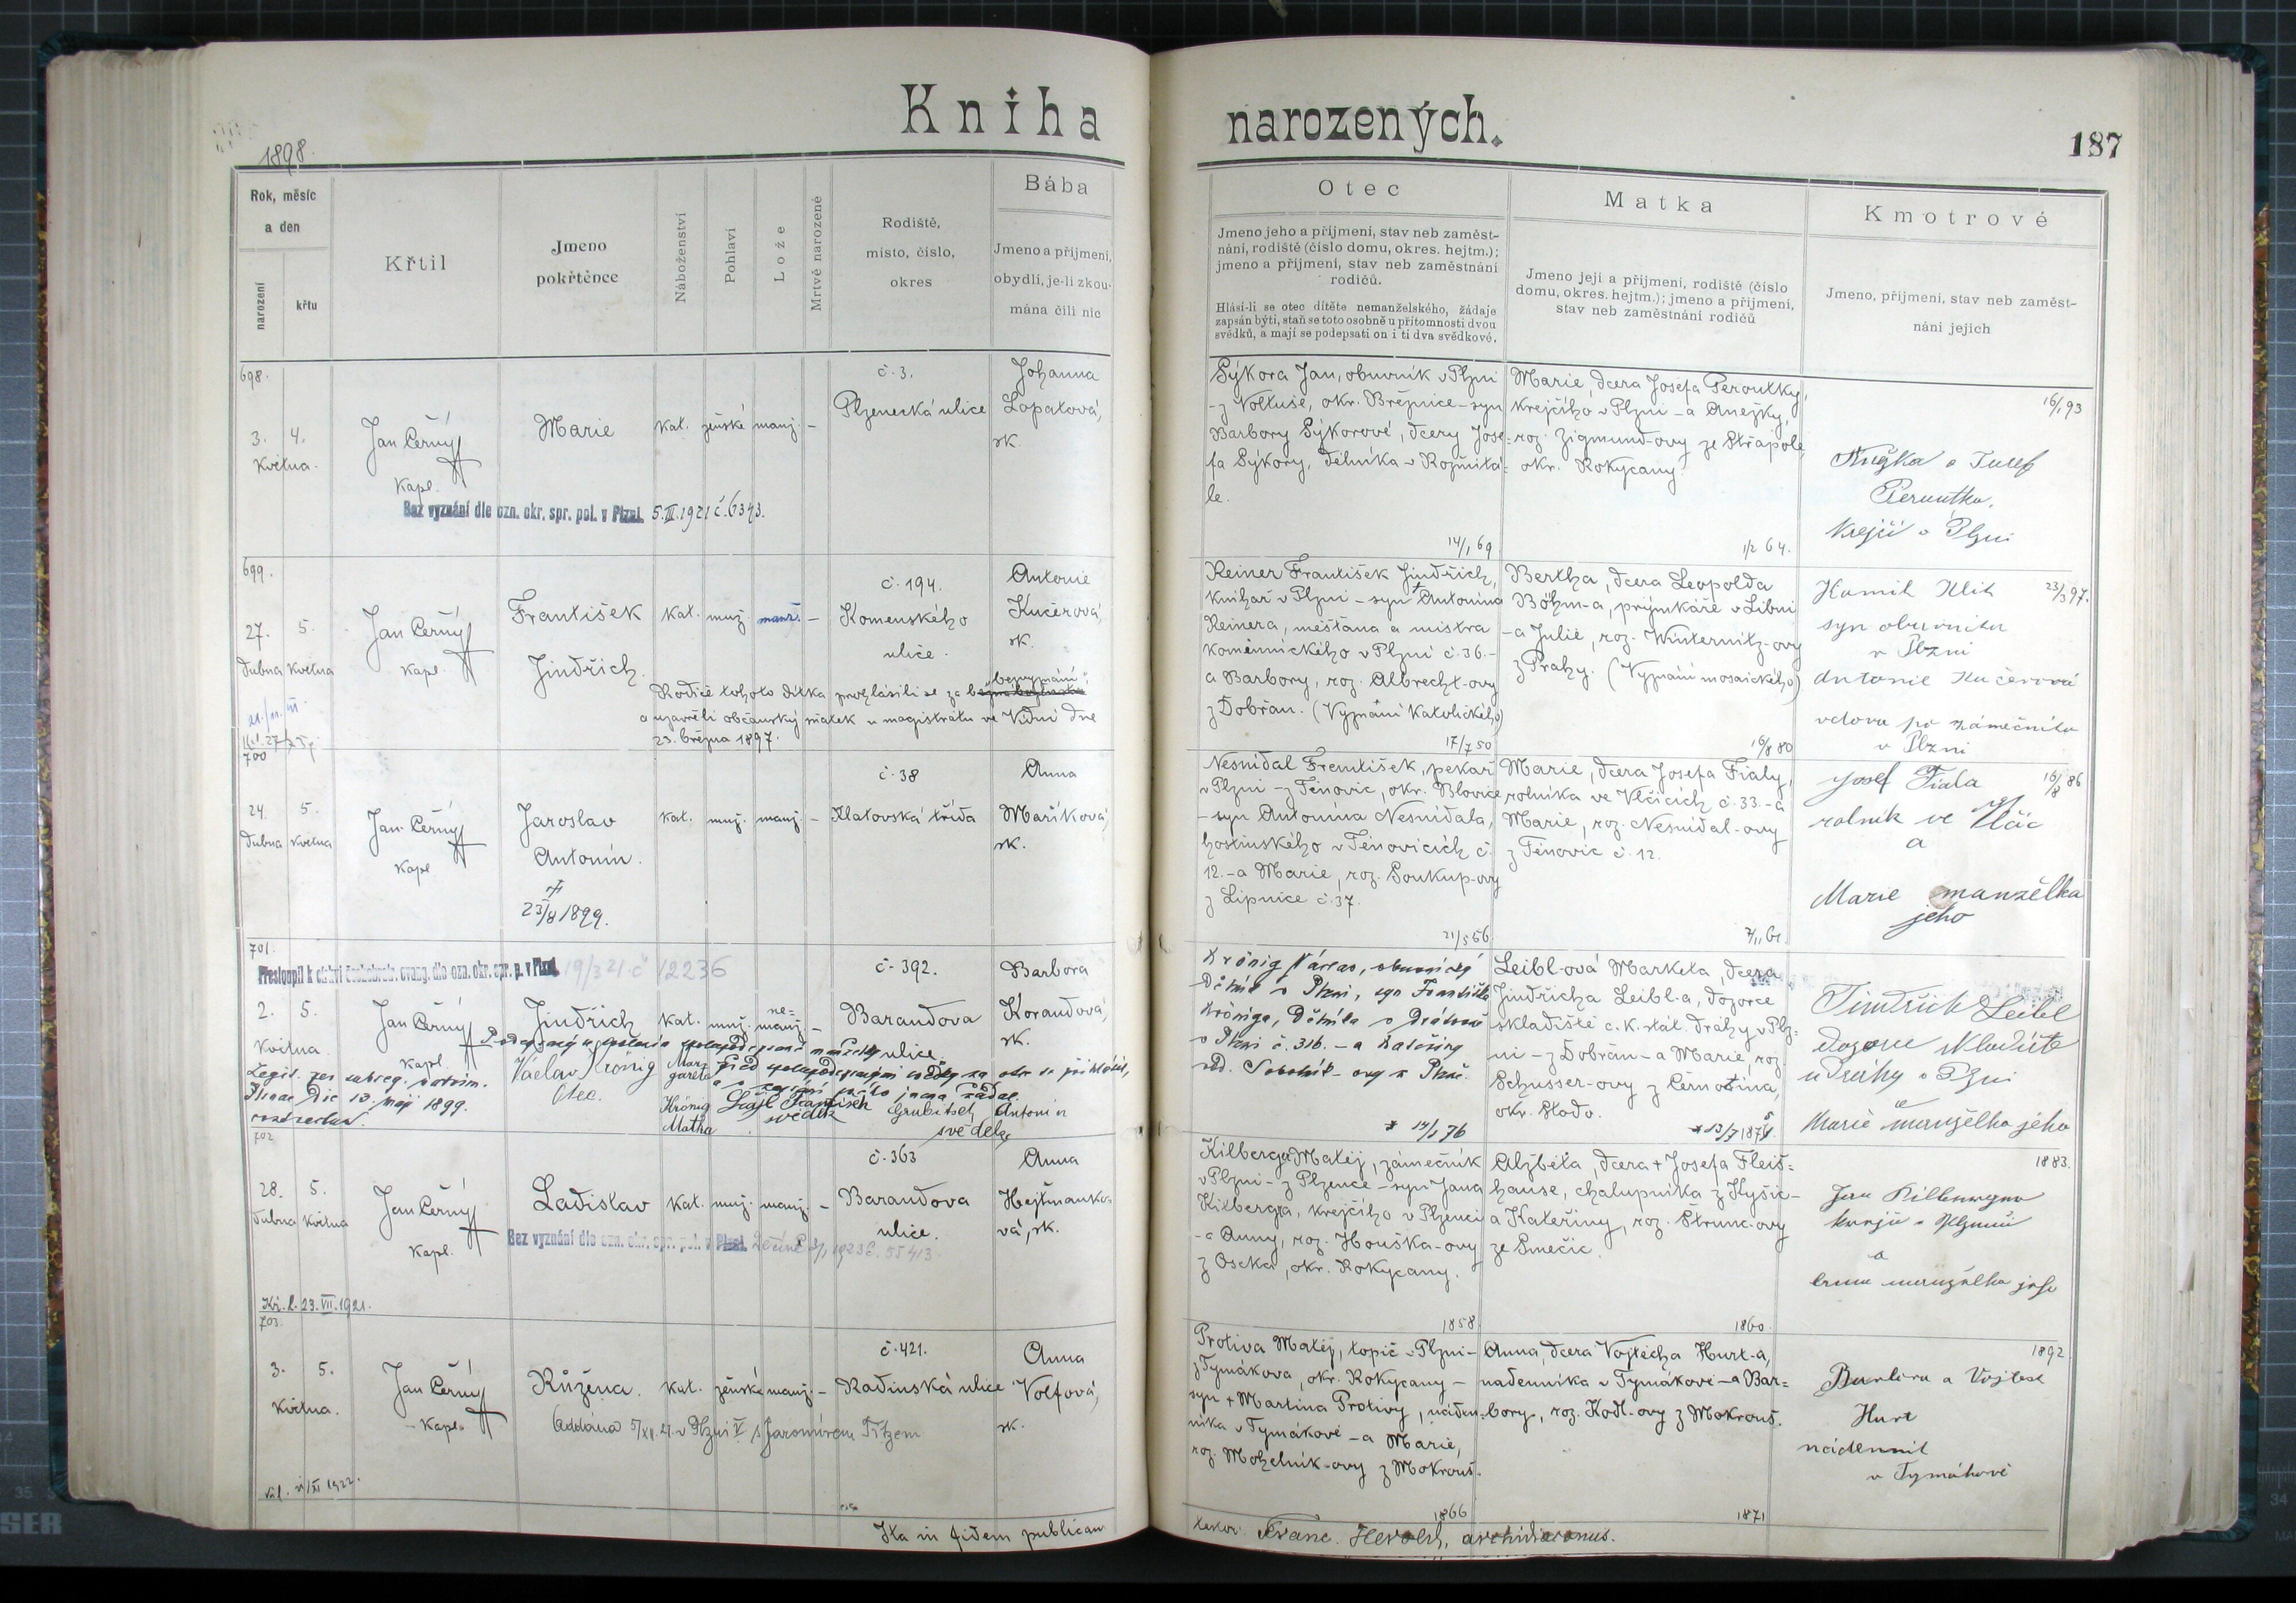 Kniha narozených.
1898.
187
Rok, měsíc
a den
narození
křtu
Křtil
Jmeno
pokřtěnce
Náboženství
Pohlaví
Lože
Mrtvě narozené
Rodiště,
místo, číslo,
okres
Bába
Jmeno a příjmení,
obydlí, je-li zkou-
mána čili nic
Otec
Jmeno jeho a příjmení, stav neb zaměst-
nání, rodiště (číslo domu, okres. hejtm.);
jmeno a příjmení, stav neb zaměstnání
rodičů.
Hlásí-li se otec dítěte nemanželského, žádaje
zapsán býti, staň se toto osobně u přítomnosti dvou
svědků, a mají se podepsati on i ti dva svědkové.
Matka
Jmeno její a příjmení, rodiště (číslo
domu, okres. hejtm.); jmeno a příjmení,
stav neb zaměstnání rodičů
Kmotrové
Jmeno, příjmení, stav neb zaměst-
nání jejich
698.
3. 4.
Května.
Jan Černý
Kapl.
Marie
kat. ženské manž. -
č. 3.
Plzenská ulice
Johanna
Lopatová,
sk.
Bez vyznání dle ozn. okr. spr. pol. v Plzni. 5.III.1921 č. 6343.
Sýkora Jan, obuvník v Plzni
- z Voltuše, okr. Březnice - syn
Barbory Sýkorové, dcery Jose=
fa Sýkory, dělníka v Rožmitá=
le.
14/1 69
Marie, dcera Josefa Peroutky,
krejčího v Plzni - a Anežky,
roz. Zigmund-ovy ze Střapole,
okr. Rokycany.
1/2 64.
16/1 93
Josef
Peroutka,
krejčí v Plzni
699.
27. 5.
dubna května
Jan Černý
Kapl.
František
Jindřich.
kat. muž. manž. -
č. 194.
Komenského
ulice.
Antonie
Kučerová,
sk.
Rodiče tohoto dítka prohlásili se za "bezvyznání"
a uzavřeli občanský sňatek u magistrátu ve Vídni dne
23. března 1897.
Reiner František Jindřich,
knihař v Plzni - syn + Antonína
Reinera, měšťana a mistra
kominického v Plzni č. 36. -
a Barbory, roz. Albrecht-ovy
z Dobřan. (Vyznání katolického)
17/7 50
Bertha, dcera Leopolda
Böhm-a, prýmkáře v Libni
- a Julie, roz. Winternitz-ovy
z Prahy. (Vyznání mosaického)
16/8 80
Kamil Klik 23/3 97.
syn obuvníka
v Plzni
Antonie Kučerová
vdova po zámečníku
v Plzni
700
24. 5.
dubna května
Jan Černý
Kapl
Jaroslav
Antonín.
23/8 1899.
kat. muž. manž. -
č. 38
Klatovská třída
Anna
Maříková,
sk.
Nesnídal František, pekař
v Plzni - z Týnovic, okr. Blovice
- syn Antonína Nesnídala,
hostinského v Týnovicích č.
12. - a Marie, roz. Soukup-ovy
z Lipnice č. 37.
21/5 56
Marie, dcera Josefa Fialy,
rolníka ve Vlčicích č. 33. - a
Marie, roz. Nesnídal-ovy
z Týnovic č. 12.
7/11 61.
Josef Fiala 16/8 86
rolník ve Vlčic
a
Marie manželka
jeho
701.
Přestoupil k církvi českobratr. evang. dle ozn. okr. spr. p. v Plzni 19/3 21 č 12236
2. 5.
Května
Jan Černý
Kapl
Jindřich
kat. muž. ne=
manž. -
č. 392.
Barandova
ulice.
Barbora
Korandová,
sk.
Legit. per subseq. matrim.
Pilsnae die 13. maji 1899.
Václav Krönig
Otec.
Mar=
gareta
Krönig
Matka
František
svědek
Grubitsch Antonín
svědek
Krönig Václav, obuvnický
dělník v Plzni, syn Františka
Kröniga, dělníka v drátovně
v Plzni č. 316. - a Kateřiny
roz. Sobotník-ovy z Plzně.
* 14/1 76
Leibl-ová Markéta, dcera
Jindřicha Leibl-a, dozorce
skladiště c. k. stát. dráhy v Plz=
ni - z Dobřan - a Marie, roz.
Schusser-ovy z Černotína,
okr. Stodo.
Jindřich Leibl
dozorce skladiště
u dráhy v Plzni
a
Marie manželka jeho
702
28. 5.
dubna května
Jan Černý
Kapl.
Ladislav
kat. muž. manž. -
č. 363
Barandova
ulice.
Anna
Hejtmanko=
vá, sk.
Bez vyznání dle ozn. okr. spr. pol. v Plzni.
Kř. l. 23.VII.1921.
Kilberger Matěj, zámečník
v Plzni - z Plzence - syn Jana
Kilbergra, krejčího v Plzenci
- a Anny, roz. Houška-ovy
z Oseka, okr. Rokycany.
1858.
Alžběta, dcera + Josefa Fleiš=
hanse, chalupníka z Kyšic -
a Kateřiny, roz. Štrunc-ovy
ze Smečic.
1860.
1883.
Jan
a
manželka jeho
703.
3. 5.
Května.
Jan Černý
- Kapl.
Růžena.
kat. ženské manž. -
č. 421.
Radinská ulice
Anna
Volfová,
sk.
Oddána 5/XII.21. v Plzni V s Jaromírem Titzem
Protiva Matěj, topič v Plzni -
z Tymákova, okr. Rokycany -
syn + Martina Protivy, náden=
níka v Tymákově - a Marie,
roz. Mohelník-ovy z Mokrouš.
1866
Anna, dcera Vojtěcha Hurt-a,
nádenníka v Tymákově - a Bar=
bory, roz. Kodl-ovy z Mokrouš.
1871
1892
Barbora a Vojtěch
Hurt
nádenník
v Tymákově
Ita in fidem publicam
Franc. Herold, archidiaconus.